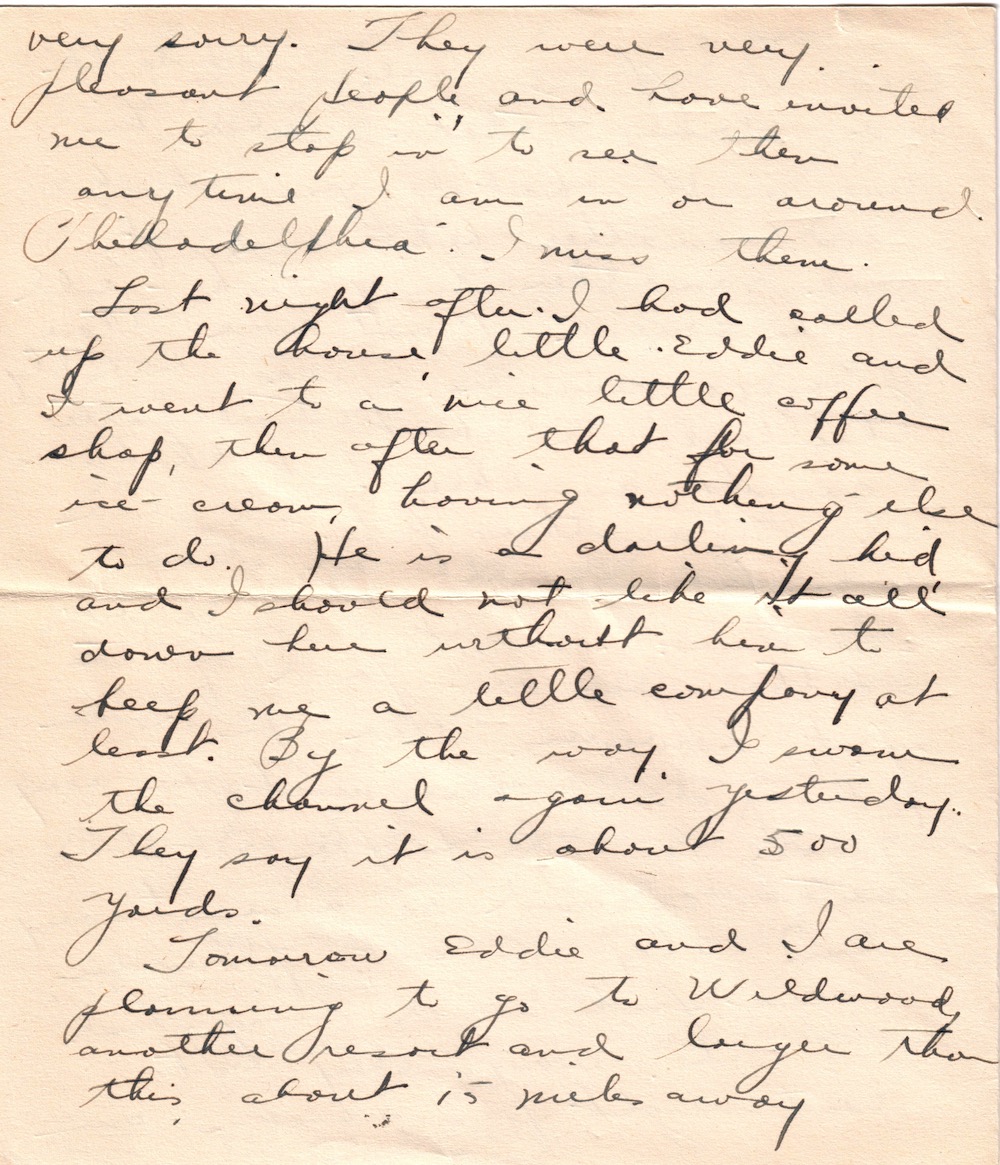 very sorry. They were very
pleasant people, and have invited
me to stop in to see them
anytime I am in or around
Philadelphia. I miss them.
Last night after I had called
up the house, little Eddie and
I went to a nice little coffee
shop, then after that for some
ice-cream, having nothing else
to do. He is a darling kid
and I should not like it all
down here without him to
keep me a little company at
least. By the way, I swam
the channel again yesterday.
They say it is about 500
yards.
Tomorrow Eddie and I are
planning to go to Wildwood,
another resort and larger than
this, about 15 miles away